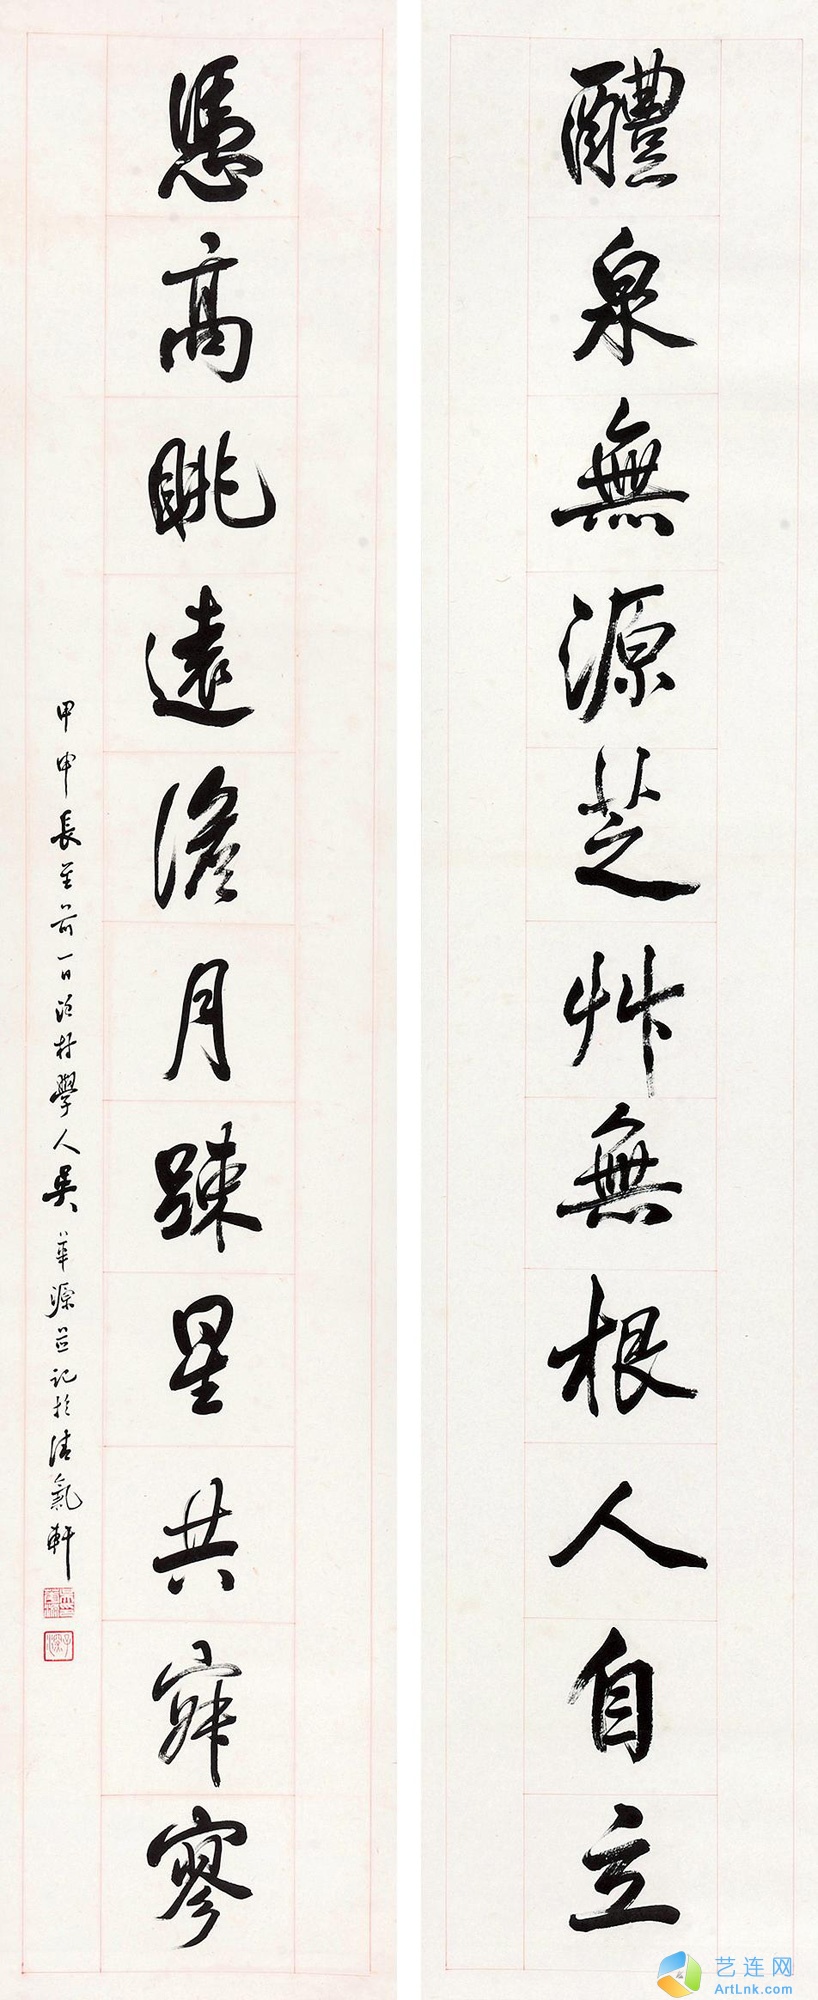 醴泉無源芝艸無根人自立
憑高眺遠澹月踈星共寂寥
甲申長至前一日沿村學人吳華源並記於清氣軒
艺连网
ArtLnk.com